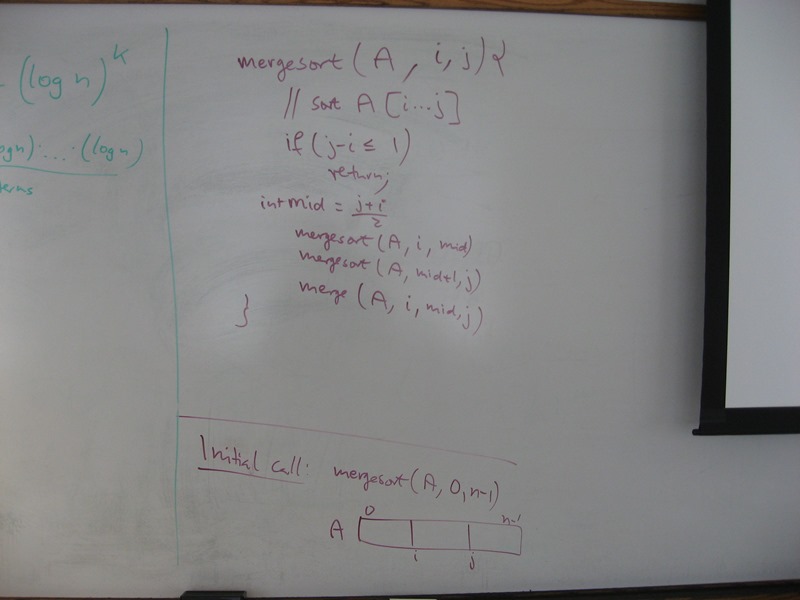 (log n)^k
logn)·...·(log n)
terms
mergesort (A, i, j) {
// sort A [i...j]
if (j-i ≤ 1)
return;
int mid = j+i
2
mergesort (A, i, mid)
mergesort (A, mid+1, j)
merge (A, i, mid, j)
}
Initial call: mergesort (A, 0, n-1)
0 n-1
A
i j